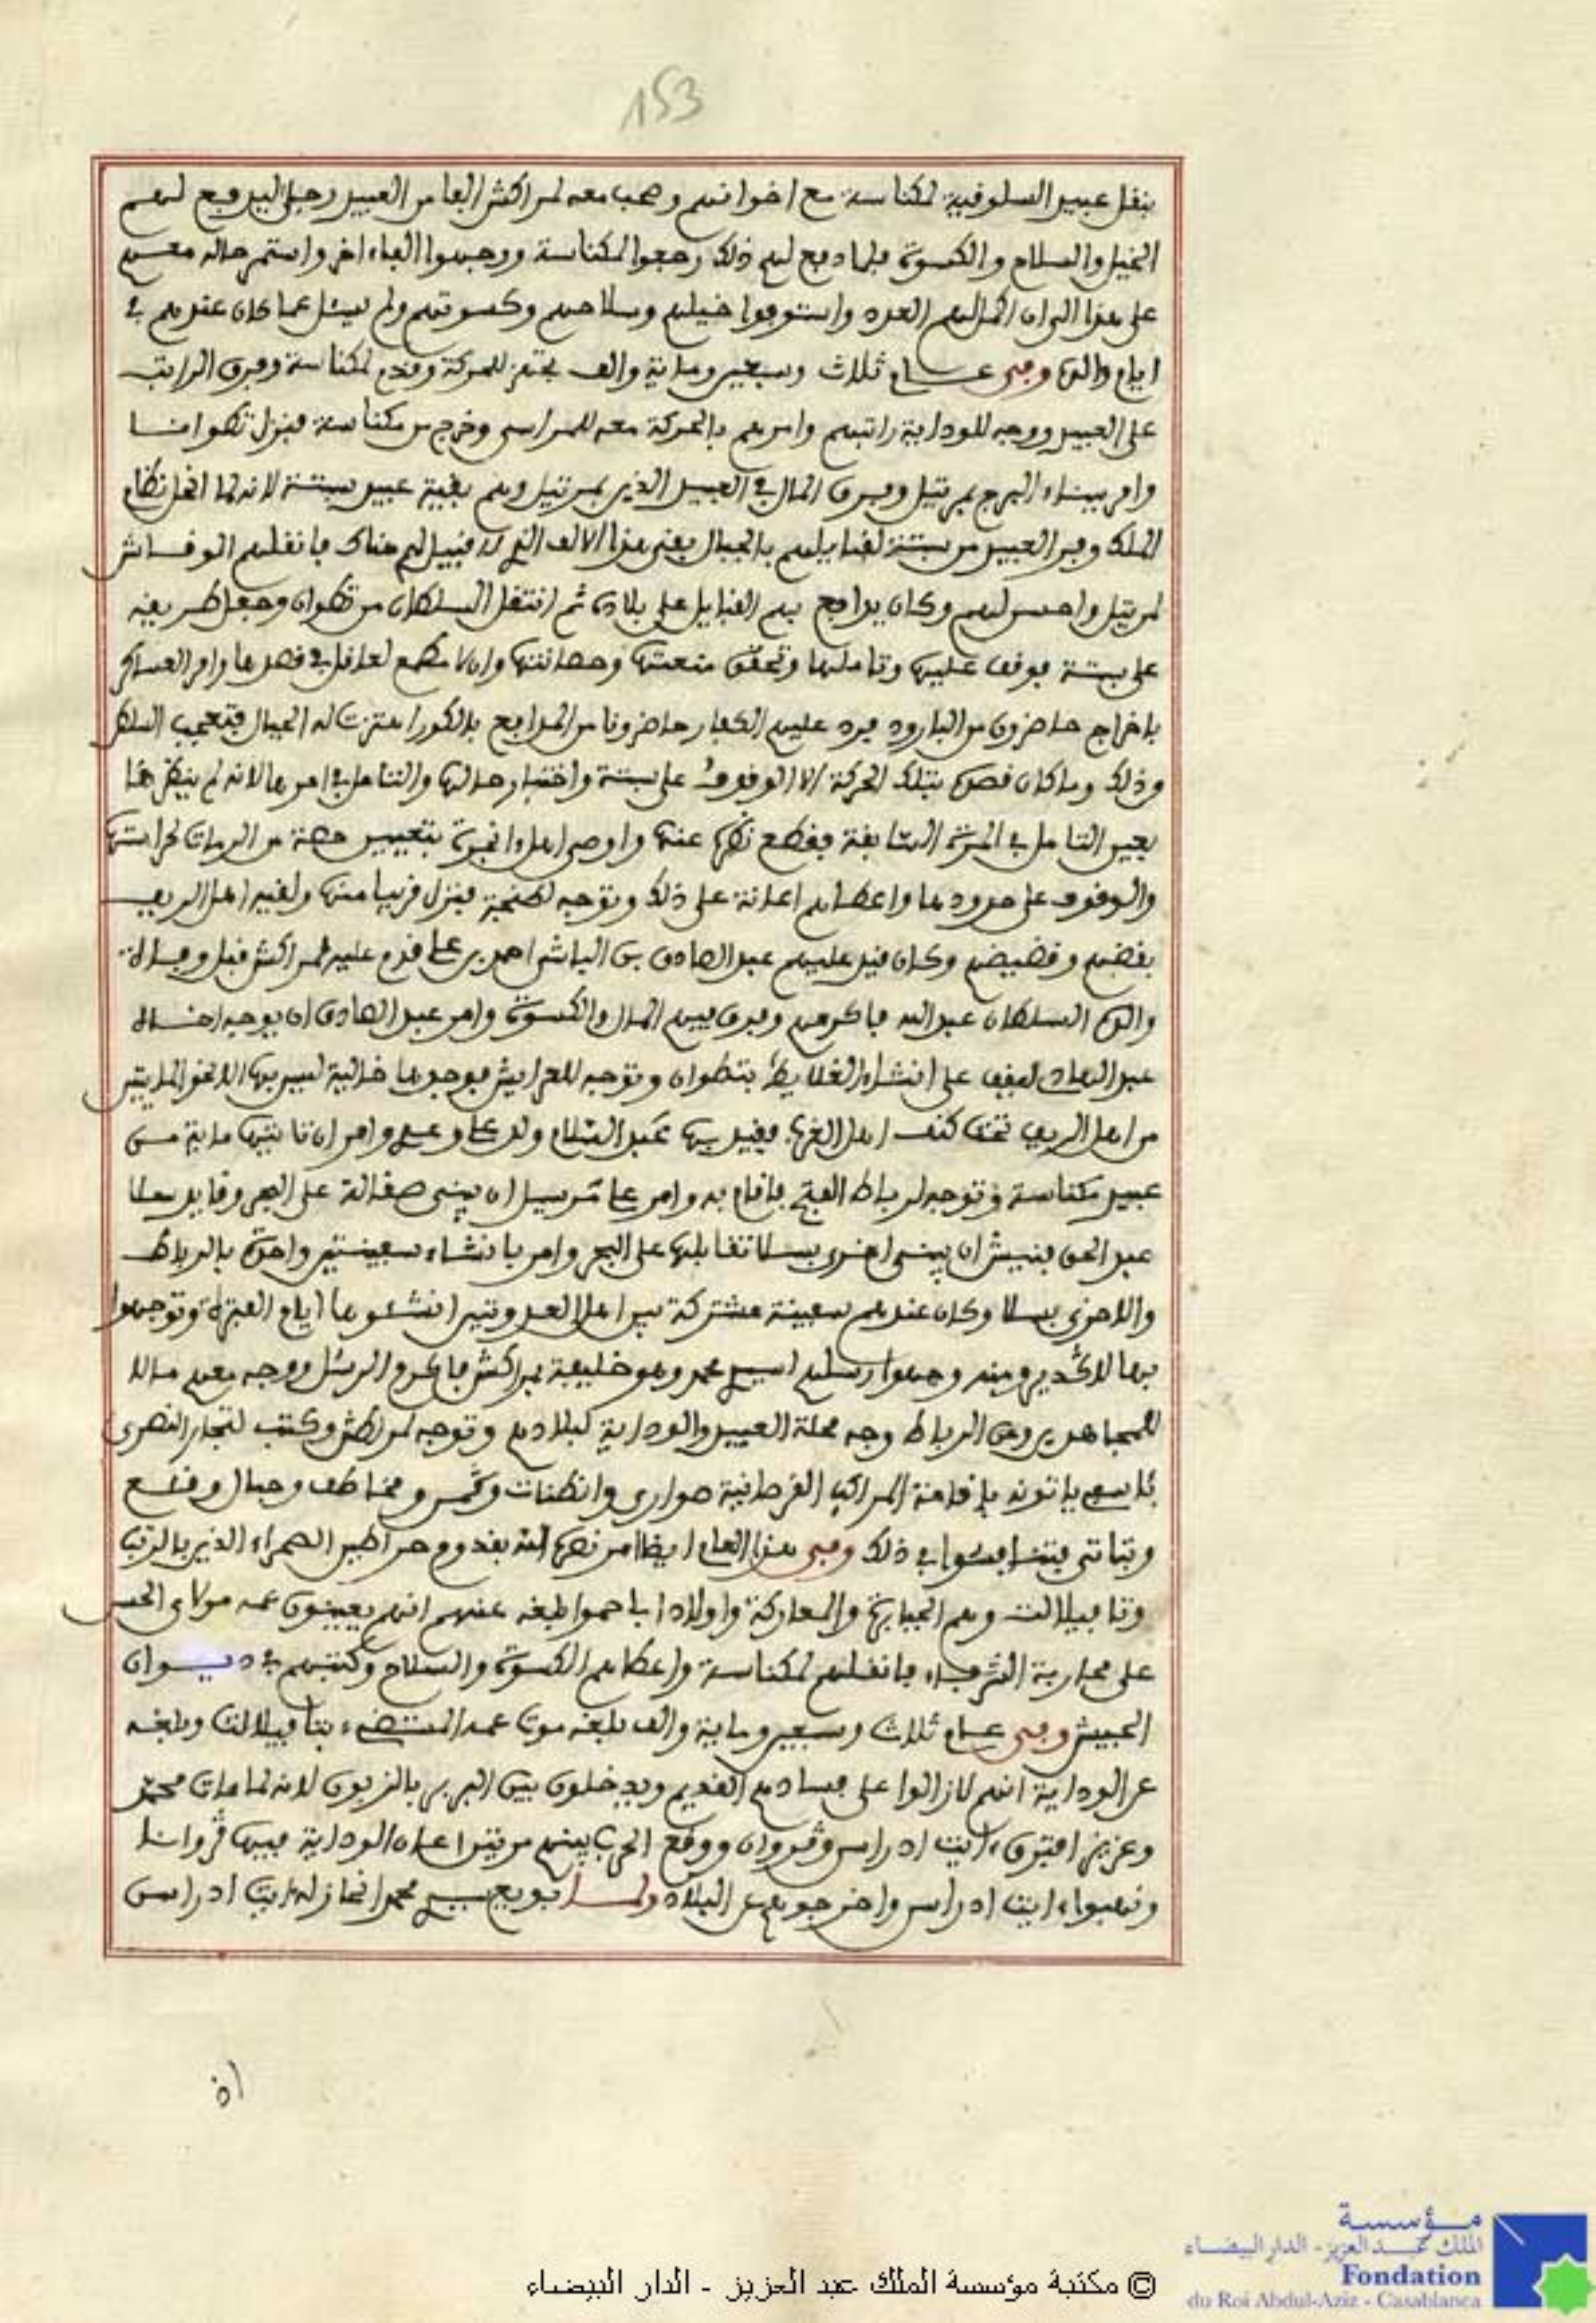 153
بنقل عبيد السلوقية لمكناسة مع اخوانهم وصحب معه لمراكش الفا من العبيد رجل اليد دفع لهم
الخيل والسلاح والكسوة فلما دفع لهم ذلك رجعوا لمكناسة ووجهوا الفاء اخر واستمر حاله معهم
على هذا الى ان اكمل لهم العدد واستوفوا خيلهم وسلاحهم وكسوتهم ولم يسئل عما كان عندهم في
ايام والده وفى عام ثلاث وسبعين وماية والف تجهز للحركة وقدم لمكناسة وفرق الراتب
على العبيد ووجه للوداية راتبهم وامرهم بالحركة معه للمراسى وخرج من مكناسة فنزل تطوانا
وامر ببناء البرج بمرتيل وفرق المال في العبيد الذين بمرتيل وهم بقية عبيد سبتة لانه لما انحل نظام
الملك وفر العبيد من سبتة لقبايلهم بالجبال بقى هذا الالف الذي لا قبيل لهم هناك فانقلهم الوقاش
لمرتيل واحسن لهم وكان يدافع بهم القبايل على بلاده ثم انتقل السلطان من تطوان وجعل طريقه
على سبتة فوقف عليها وتاملها وتحقق منعتها وحصانتها وان لا مطمع لعاقل في حصرها وامر العساكر
باخراج حاضرون من البارود فرد عليهم الكفار حاضرونا من المدافع بالكور اهتزت له الجبال فتعجب السلطان
وذلك وما كان قصده بتلك الحركة الا الوقوف على سبتة واختبار حالها والتامل في امرها لانه لم ينظرها
بعين التامل في المرة السابقة فقطع نظره عنها واوصى اهل انجرة بتعيين حصة من الرماة لحراستها
والوقوف على حدودها واعطاهم اعانة على ذلك وتوجه لطنجة فنزل قريبا منها ولقيه اهل الريف
بقضهم وقضيضهم وكان قيد عليهم عبد الصادق بن الباشا احمد بن على قدم عليه لمراكش قبل وفاة
والده السلطان عبد الله فاكرمهم وفرق فيهم المال والكسوة وامر عبد الصادق ان يوجه اخاه
عبد الهادي ليقف على انشاء الغلايط بتطوان وتوجه للعرايش فوجدها خالية ليس بها الا نحو المايتين
من اهل الريف تحت كنف اهل الغرب فقيد بها عبد السلام ولد على وعلى وامر ان تاتيها ماية من
عبيد مكناسة وتوجه لرباط الفتح فاقام به وامر على مرسيل ان يبنى صقالة على البحر وقايد سلا
عبد الحق فنيش ان يبنى اخرى بسلا تقابلها على البحر وامر بانشاء سفينتين واحدة بالرباط
والاخرى بسلا وكان عندهم سفينة مشتركة بين اهل العدوتين انشئوها ايام الفترة وتوجهوا
بها لاڭدير ومنه وجهوا رسلهم لسيدي محمد وهو خليفة بمراكش فاكرم الرسل ووجه معهم مالا
للمجاهدين ومن الرباط وجه محلة العبيد والوداية لبلادهم وتوجه لمراكش وكتب لتجار النصرى
بئاسفي ياتونه باقامة المراكب القرصانية صواري وانطنات وڭمن ومخاطف وحبال وقلع
وبتاتى فتسابقوا في ذلك وفى هذا العام ايضا امر نصره الله بقدوم مرابطين الصحراء الذين بالرتب
وتافيلالت وهم الجبابرة والمعاركة واولاد ابا حموا بلغه عنهم انهم يعينون عمه مولاي الحسن
على محاربة الشرفاء فانقلهم لمكناسة واعطاهم الكسوة والسلاح وكتبهم في ديوان
الجيش وفى عام ثلاث وسبعين وماية والف بلغه موت عمه المستضيء بتافيلالت وبلغه
عن الوداية انهم لازالوا على فسادهم القديم ويدخلون بين البربر بالزبون لانه لما مات محمد
وعزيز افترق ءايت ادراس وڭروان ووقع الحرب بينهم مرتين اعان الوداية فيها ڭروانا
ونهبوا ءايت ادراسن واخرجوهم عن البلاد ولما بويع سيدي محمد انحاز له ءايت ادراسن
© مكتبة مؤسسة الملك عبد العزيز - الدار البيضاء
مؤسسة
الملك عبد العزيز - الدار البيضاء
Fondation
du Roi Abdul-Aziz - Casablanca